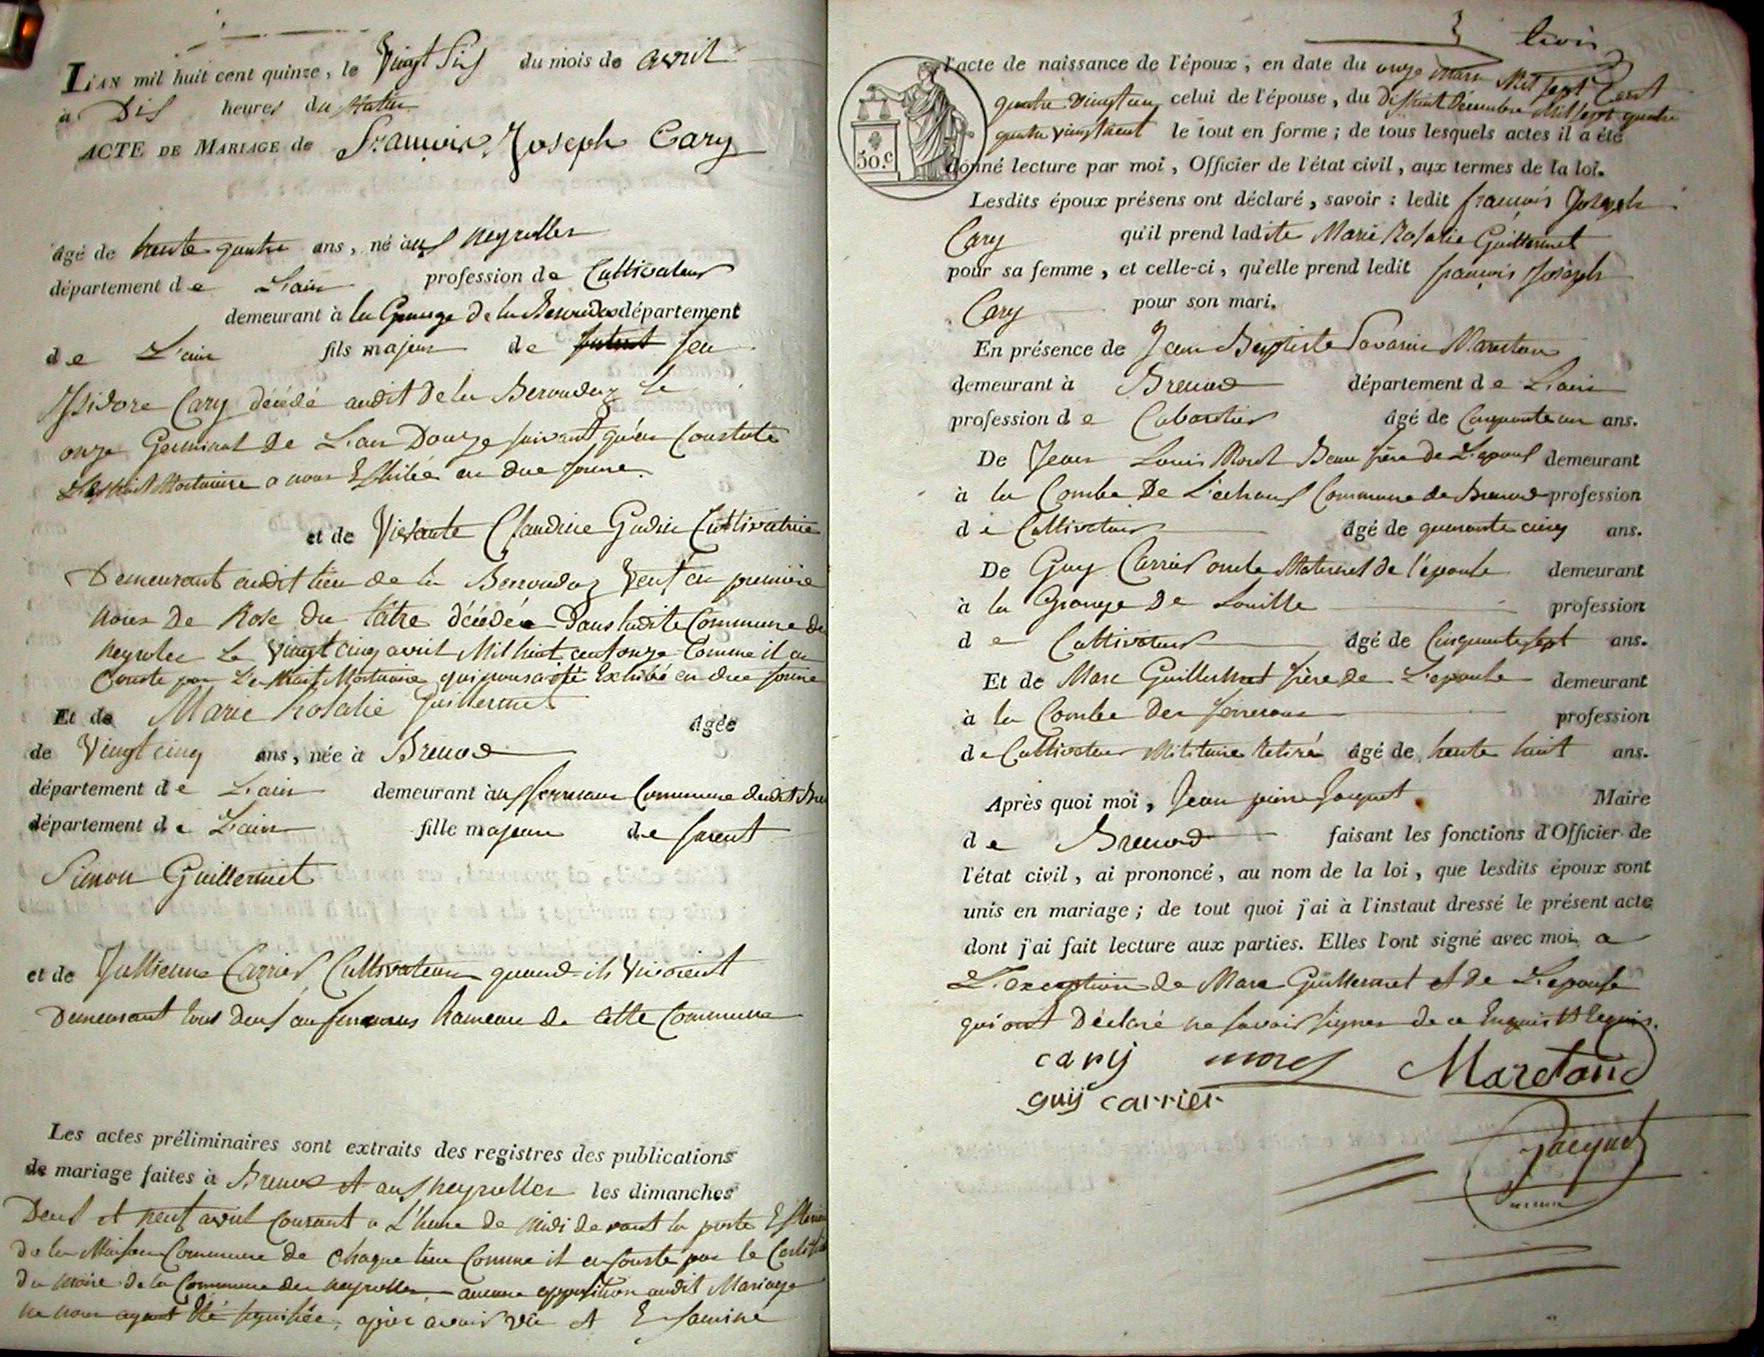 L'AN mil huit cent quinze, le Vingt Six du mois de avril
à Dix heures du Matin
ACTE DE MARIAGE de François Joseph Cary
âgé de trente quatre ans, né aux neyrolles
département de L'ain profession de Cultivateur
demeurant à la Grange De la département
de L'ain fils majeur de feu
Isidore Cary décédé audit De la le
onze Germinal De L'an Douze suivant qu'en Constate
L'Extrait Mortuaire a nous Exhibée en due forme
et de Vivante Claudine Gudin Cultivatrice
Demeurant audit lieu de la Veuf en première
noces De Rose du décédée Dans ladite Commune de
neyrolles Le Vingt cinq avril Mil huit cent onze Comme il en
Conste par L'extrait Mortuaire qui nous a été Exhibé en due forme
Et de Marie Rosalie Guillermet âgée
de Vingt cinq ans, née à Brenod
département de L'ain demeurant aux ferreaux Commune dudit
département de L'ain fille majeure de furent
Simon Guillermet
et de Jullienne Carrier Cultivateurs quand ils Vivoient
Demeurant tous Deux au hameau de cette Commune
Les actes préliminaires sont extraits des registres des publications
de mariage faites à Brenod et aux neyrolles les dimanches
Deux et neuf avril Courant a L'heure de midi devant la porte
de la Maison Commune de chaque lieu Comme il en Conste par le
du maire de la Commune des neyrolles aucune opposition audit Mariage
ne nous ayant été signifiée, après avoir vu et Examiné
3 trois
50.c
l'acte de naissance de l'époux, en date du onze mars Mil sept Cent
quatre vingt un celui de l'épouse, du Dix huit Décembre Mil sept
quatre vingt neuf le tout en forme; de tous lesquels actes il a été
donné lecture par moi, Officier de l'état civil, aux termes de la loi.
Lesdits époux présens ont déclaré, savoir: ledit françois Joseph
Cary qu'il prend ladite Marie Rosalie Guillermet
pour sa femme, et celle-ci, qu'elle prend ledit françois Joseph
Cary pour son mari.
En présence de Jean Baptiste Savarin Maretan
demeurant à Brenod département de L'ain
profession de Cabaretier âgé de Cinquante un ans.
De Jean Louis Morel Beau frère De L'epoux demeurant
à la Combe De Commune de Brenod profession
de Cultivateur âgé de quarante cinq ans.
De Guy Carrier oncle Maternel de l'épouse demeurant
à la Grange De profession
de Cultivateur âgé de Cinquante sept ans.
Et de Marc Guillermet frère de L'epouse demeurant
à la Combe Des ferreaux profession
de Cultivateur Militaire Retiré âgé de trente huit ans.
Après quoi moi, Jean pierre Jacquet Maire
de Brenod faisant les fonctions d'Officier de
l'état civil, ai prononcé, au nom de la loi, que lesdits époux sont
unis en mariage; de tout quoi j'ai à l'instaut dressé le présent acte
dont j'ai fait lecture aux parties. Elles l'ont signé avec moi, a
L'exception de Marc Guillermet et de L'epouse
qui ont Déclaré ne savoir signer de ce Enquis et Requis.
cary morel Maretand
guy carrier
Jacquet